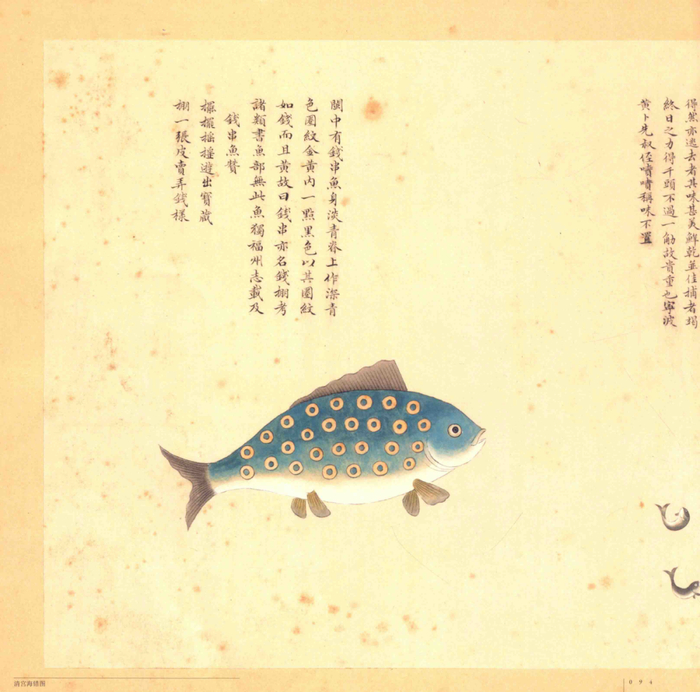 得
亦逸去者其味甚美鮮乾並佳捕者竭
終日之力得千頭不過一觔故貴重也寧波
黃卜先叔侄嘖嘖稱味不置
閩中有錢串魚身淡青脊上作深青
色圈紋金黃內一點黑色以其圈紋
如錢而且黃故曰錢串亦名錢棚考
諸類書魚部無此魚獨福州志載及
錢串魚贊
擺擺搖搖遊出寶藏
棚一張皮賣弄錢樣
清宫海错图
094